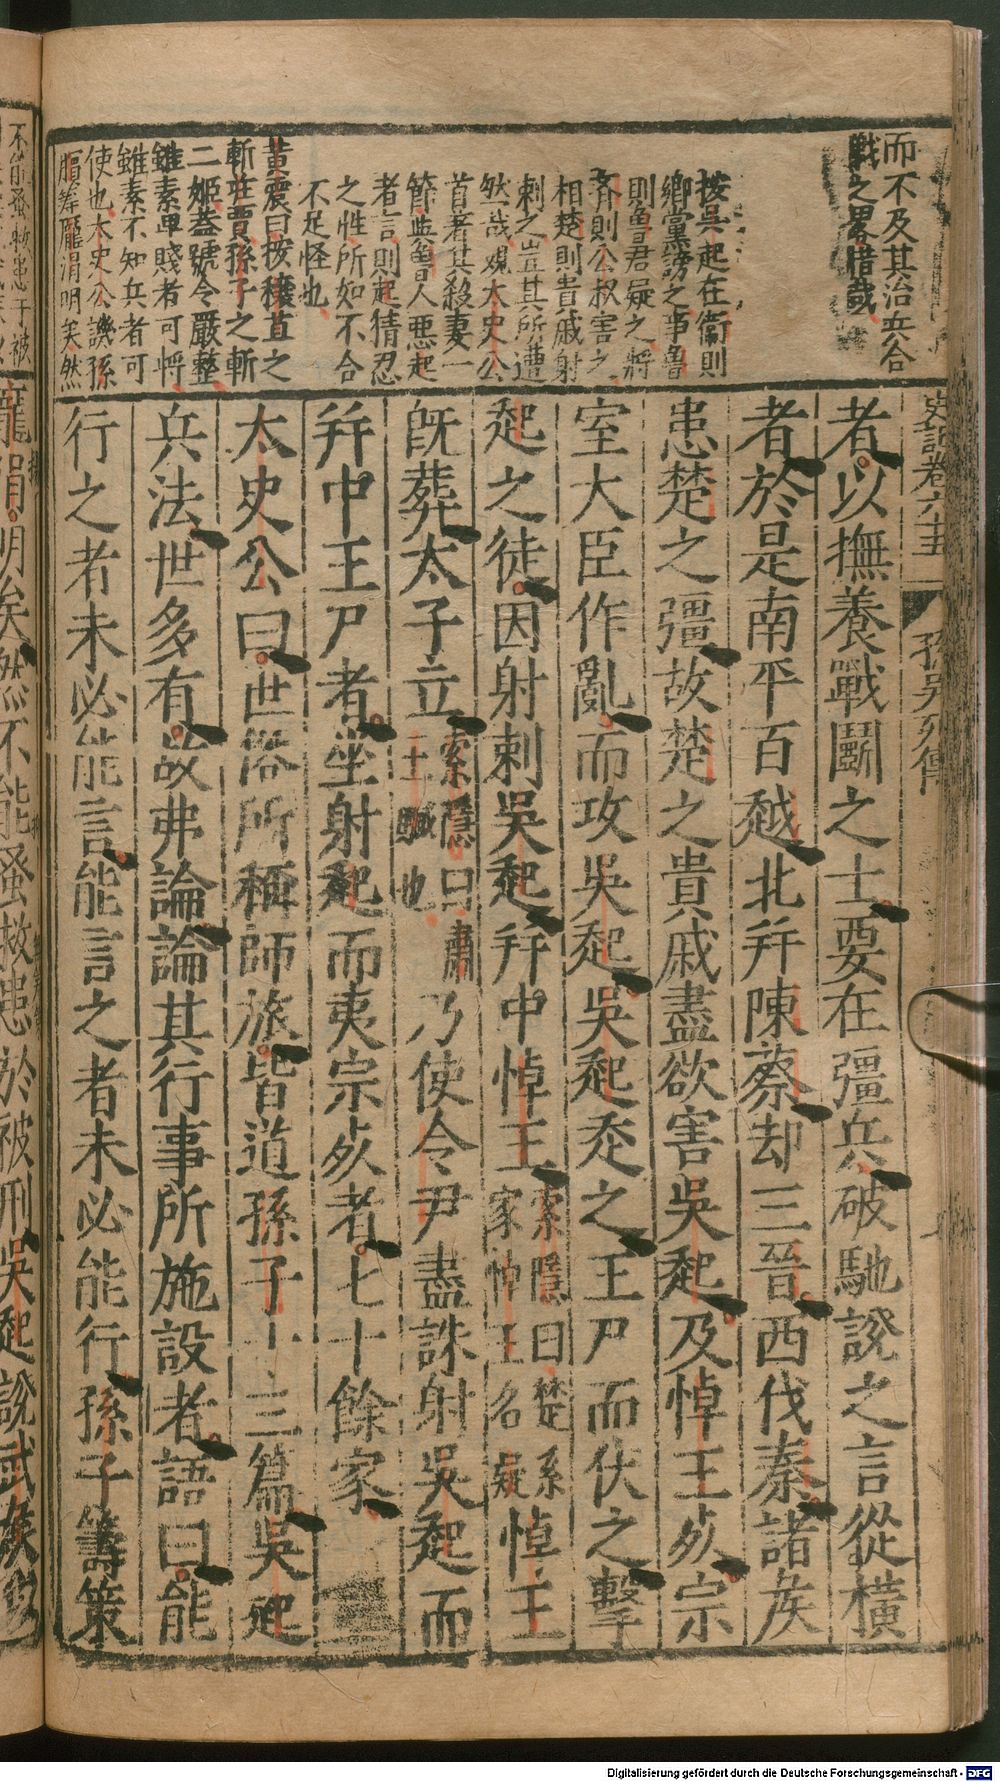 而不及其治兵合
戰之畧惜哉
按吳起在衞則
鄉黨謗之事魯
則魯君疑之將
齊則公叔害之
相楚則貴戚射
刺之豈其所遭
然哉觀太史公
首著其殺妻一
節並魯人惡起
者言則起猜忍
之性所如不合
不足怪也
黃震曰按穰苴之
斬莊賈孫子之斬
二姬葢號令嚴整
雖素卑賤者可將
雖素不知兵者可
使也太史公譏孫
臏籌龐涓明矣然
史記卷六十五
孫吳列傳
者以撫養戰鬭之士要在彊兵破馳說之言從橫
者於是南平百越北并陳蔡却三晉西伐秦諸矦
患楚之彊故楚之貴戚盡欲害吳起及悼王歿宗
室大臣作亂而攻吳起吳起走之王尸而伏之擊
起之徒因射刺吳起并中悼王索隱曰楚系家悼王名疑悼王
旣葬太子立索隱曰肅王臧也乃使令尹盡誅射吳起而
并中王尸者坐射起而夷宗歿者七十餘家
太史公曰世俗所稱師旅皆道孫子十三篇吳起
兵法世多有故弗論論其行事所施設者語曰能
行之者未必能言能言之者未必能行孫子籌策
龐涓明矣然不能蚤救患於被刑吳起說武矦
Digitalisierung gefördert durch die Deutsche Forschungsgemeinschaft - DFG